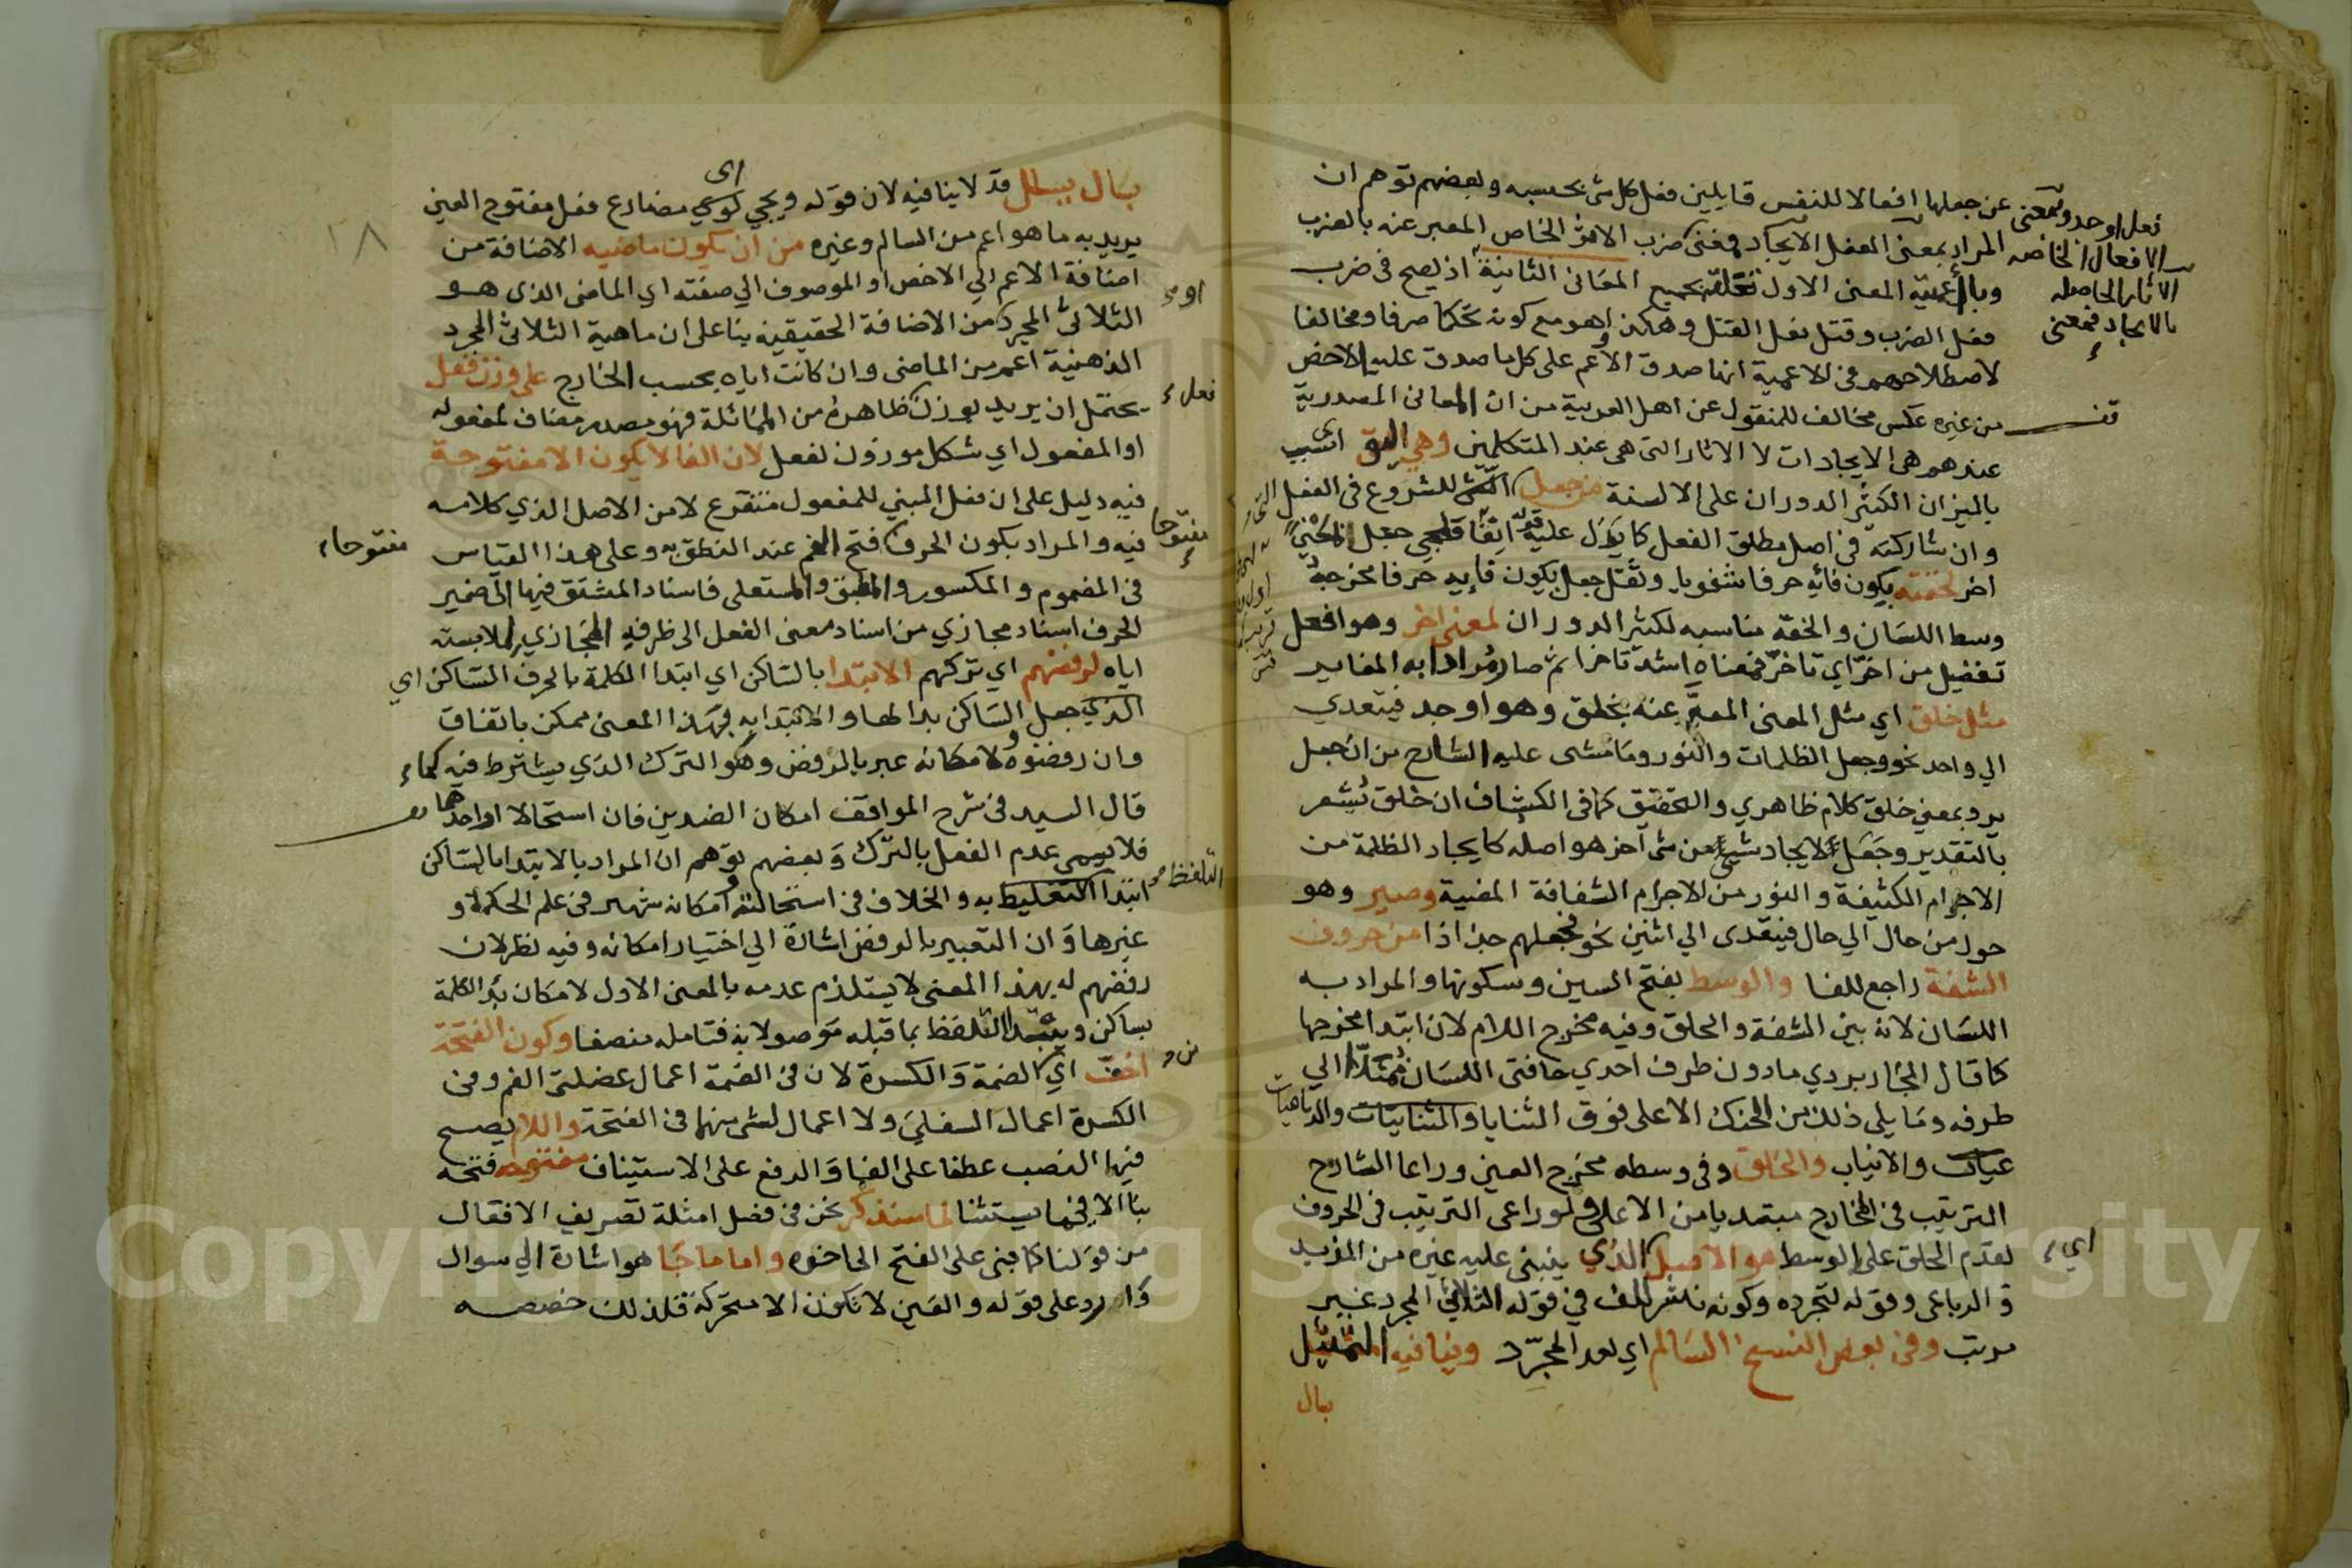 عن جعلها افعالا للنفس قايلين فعل كل شئ بحسبه وبعضهم توهم ان
المراد بمعنى الفعل الايجاد فمعنى ضرب الاثر الخاص المعبر عنه بالضرب
المعنى الاول جميع المعانى الثانية اذ يصح فى ضرب
فعل الضرب وقتل فعل القتل وهكذا وهو مع كونه تحكما صرفا ومخالفا
لاصطلاحهم فى الاعمية انها صدق الاعم على كل ما صدق عليه الاخص
من غيره عكس مخالف للمنقول عن اهل العربية من ان المعانى المصدرية
عندهم هى الايجادات لا الاثار التى هى عند المتكلمين وهى اليق اى انسب
بالميزان الكثير الدوران على الالسنة من جعل للشروع فى الفعل
وان شاركته فى اصل مطلق الفعل كما يدل عليه قوله جعل
اخر لخفته بكون فائه حرفا شفويا وثقل جعل بكون فايه حرفا مخرجه
وسط اللسان والخفة مناسبه لكثير الدوران لمعنى اخر وهو افعل
تفضيل من اخر اي تاخر فمعناه اشد تاخرا ثم صار مرادا به المغاير
مثل خلق اي مثل المعنى المعبر عنه بخلق وهو اوجد فيتعدي
الي واحد نحو وجعل الظلمات والنور وما مشى عليه الشارح من ان جعل
يرد بمعني خلق كلام ظاهري والتحقيق كما فى الكشاف ان خلق يشعر
بالتقدير وجعل لايجاد شئ من شئ آخر هو اصله كايجاد الظلمة من
الاجرام الكثيفة والنور من الاجرام الشفافة المضية وصير وهو
حول من حال الي حال فيتعدى الي اثنين نحو فجعلهم جذاذا من حروف
الشفة راجع للفا والوسط بفتح السين وسكونها والمراد به
اللسان لانه بين الشفة والحلق وفيه مخرج اللام لان ابتدا مخرجها
كما قال الجاربردي مادون طرف احدي حافتى اللسان ممتدا الي
طرفه وما يلى ذلك من الحنك الاعلى فوق الثنايا والرباعيات
والانياب والحلق وفى وسطه مخرج العين وراعا الشارح
الترتيب فى المخارج مبتديا من الاعلى ولو راعى الترتيب فى الحروف
لقدم الحلق على الوسط هو الاصل الذي ينبنى عليه غيره من المزيد
والرباعى وقوله لتجرده وكونه نشر للف في قوله الثلاثي المجرد غير
مرتب وفى بعض النسخ السالم اي بعد المجرد وينافيه التمثيل
بال
فعل اوجد وبمعنى
الافعال الخاصه
الاثار الحاصله
بالايجاد فمعنى
اي
بال يبال قد لا ينافيه لان قوله ويجي كوي مضارع فعل مفتوح العين
اى
يريد به ما هو اعم من السالم وغيره من ان يكون ماضيه الاضافة من
اضافة الاعم الي الاخص او الموصوف الي صفته اي الماضى الذى هو
الثلاثى المجرد من الاضافة الحقيقية بنا على ان ماهية الثلاثى المجرد
الذهنية اعم من الماضى وان كانت اياه بحسب الخارج على وزن فعل
يحتمل ان يريد بوزن ظاهره من المماثلة فهو مصدر مضاف لمفعوله
او المفعول اي شكل موزون لفعل لان الفا لا يكون الا مفتوحة
فيه دليل على ان فعل المبني للمفعول متفرع لا من الاصل الذي كلامه
فيه والمراد بكون الحرف فتح الفم عند النطق به وعلى هذا القياس
فى المضموم والمكسور والمطبق والمستعلى فاسناد المشتق فيها الى ضمير
الحرف اسناد مجازي من اسناد معنى الفعل الى ظرفه المجازي لملابسته
اياه لرفضهم اي تركهم الابتدا بالساكن اي ابتدا الكلمة بالحرف الساكن اي
الذي جعل الساكن بدا لها والابتدا به بهذا المعنى ممكن باتفاق
وان رفضوه ولامكانه عبر بالرفض وهو الترك الذي يشترط فيه كما
قال السيد فى شرح المواقف امكان الضدين فان استحالا او احدهما
فلا يسمى عدم الفعل بالترك وبعضهم توهم ان المراد بالابتدا بالساكن
ابتدا به والخلاف فى استحالته وامكانه شهير فى علم الحكمة و
غيرها وان التعبير بالرفض اشارة الي اختيار امكانه وفيه نظر لان
رفضهم له بهذا المعنى لا يستلزم عدمه بالمعنى الاول لامكان بدا الكلمة
بساكن ويبتدا التلفظ بما قبله موصولا به فتامله منصفا وكون الفتحة
اخف اي الضمة والكسرة لان فى الضمة اعمال عضلتى الفم وفى
الكسرة اعمال السفلي ولا اعمال لشئ منهما فى الفتحة واللام يصح
فيها النصب عطفا على الفا والرفع على الاستيناف مفتوحه فتحه
بنا الا فيما يستثنا لما سنذكر نحن فى فصل امثلة تصريف الافعال
من قولنا كما بنى على الفتح الى اخره واما ما جا هو اشارة الي سوال
وارد على قوله والعين لا تكون الا متحركة فلذلك خصصه
او
فعل
مفتوحا
مفتوحا
التلفظ
١٨
Copyright © King Saud University